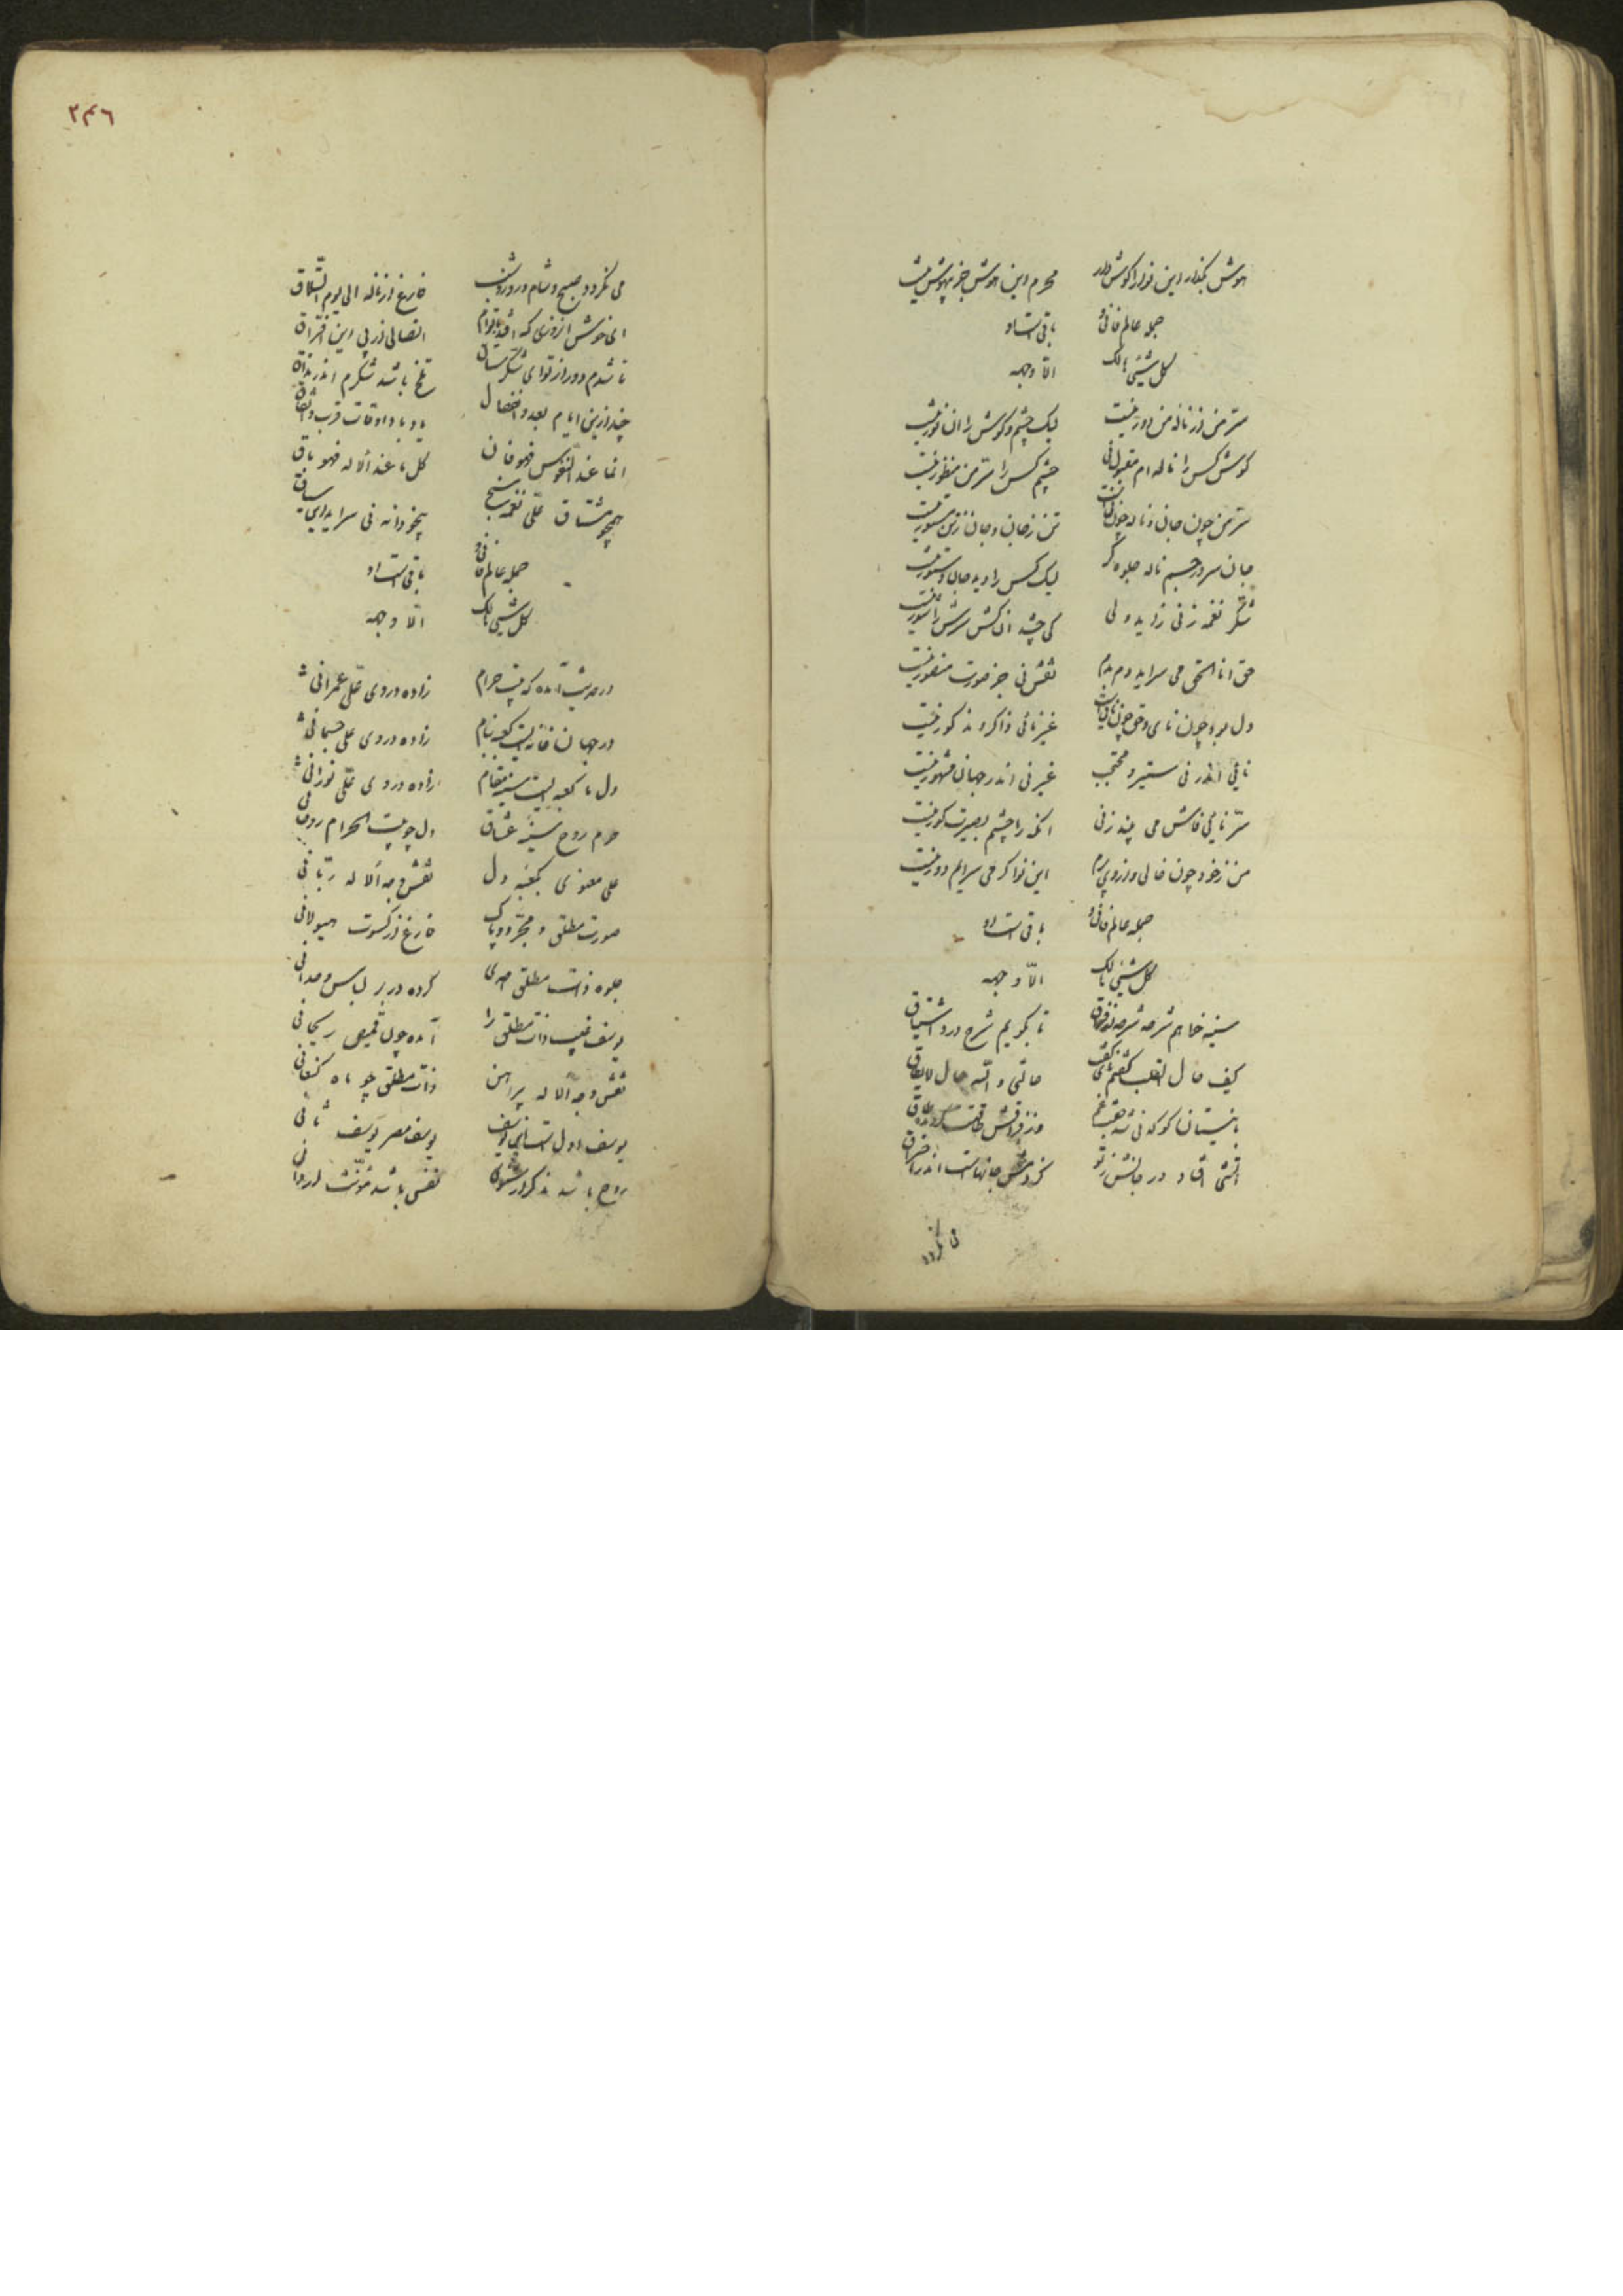 هوش بگذار این نوا را گوش دار محرم این هوش جز بیهوش نیست
جمله عالم فانی و باقی است او
کل شیئی هالک الا وجهه
سر من از ناله من دور نیست لیک چشم و گوش را آن نور نیست
گوش کس را ناله ام مقبول نی چشم کس را سر من منظور نیست
سر من چون جان و ناله چون تن است تن ز جان و جان ز تن مستور نیست
جان سر در جسم ناله جلوه گر لیک کس را دید جان دستور نیست
شکر نغمه ز نی زاید ولی کی چشد آن کش
حق انا الحق می سراید دم بدم نقش نی جز صورت منصور نیست
دل بود چون نای و حق چون غیر نائی ذاکر و مذکور نیست
نائی اندر نی ستیر و محتجب غیر نی اندر جهان مشهور نیست
سر نائی فاش می بیند ز نی آنکه را چشم بصیرت کور نیست
من ز خود چون خالی و از وی پرم این نوا گر می سرایم دور نیست
جمله عالم فانی و باقی است او
کل شیئی هالک الا وجهه
سینه خواهم شرحه شرحه از فراق تا بگویم شرح درد اشتیاق
کیف حال القلب حالتی والله حال لا یطاق
با نیستان کو که نی شد
آتشی افتاد در جانش ز تو کز دمش جانهاست اندر احتراق
می نگردد
٢٤٦
می نگردد صبح و شام و روز و شب فارغ از ناله الی یوم التلاق
ای خوش آنروزی که افتد اتصالی از پی این افتراق
تا شدم دور از تو ای شکرستان تلخ باشد شکرم اندر مذاق
چند ازین ایام بعد و انفصال یاد باد اوقات قرب و اعتناق
انما عند النفوس فهو فان کل ما عند الاله فهو باق
همچو مشتاق علی نغمه سنج بیخودانه نی سراید
جمله عالم فانی و باقی است او
کل شیئی هالک الا وجهه
در حدیث آمده که بیت حرام زاده در وی علی عمرانی
در جهان خانه ایست کعبه بنام زاده در وی علی جسمانی
دل ما کعبه ایست سینه مقام زاده در وی علی نورانی
حرم روح سینه عشاق دل چو بیت الحرام روحانی
علی معنوی بکعبه دل نقش وجه الاله ربانی
صورت مطلق و مجرد و پاک فارغ از کسوت هیولانی
جلوه ذات مطلق احدی کرده در بر لباس وحدانی
یوسف غیب ذات مطلق را آمده چون قمیص ریحانی
نقش وجه الاله پیراهن ذات مطلق چو ماه کنعانی
یوسف اول است این یوسف یوسف مصر یوسف ثانی
روح باشد مذکر نفس باشد مؤنث